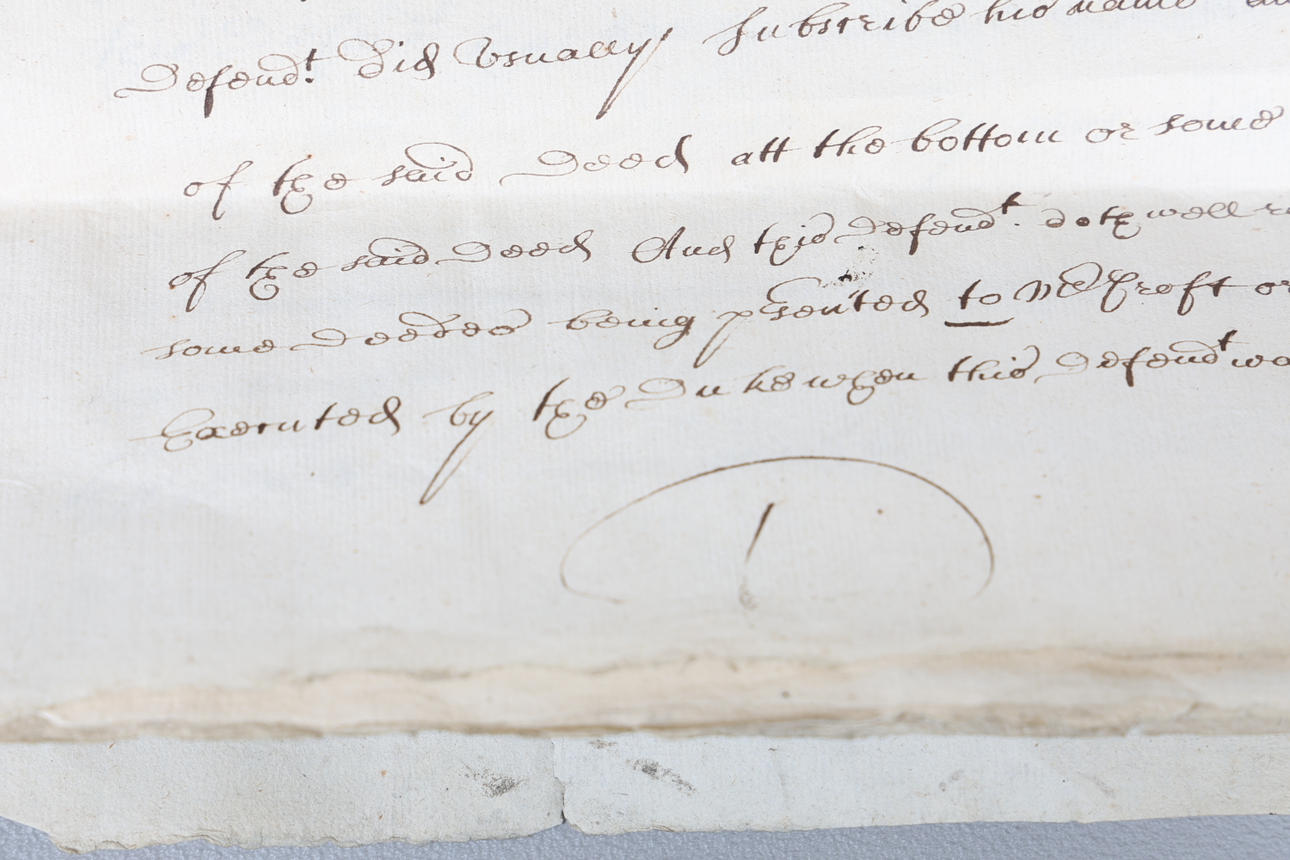 Defendt. Did Usually Subscribe his name
of the said Deed att the bottom or some
of the said Deed And this defendt. doth well
some Deedes being psented to Mr Croft or
Executed by the Duke when this Defendt